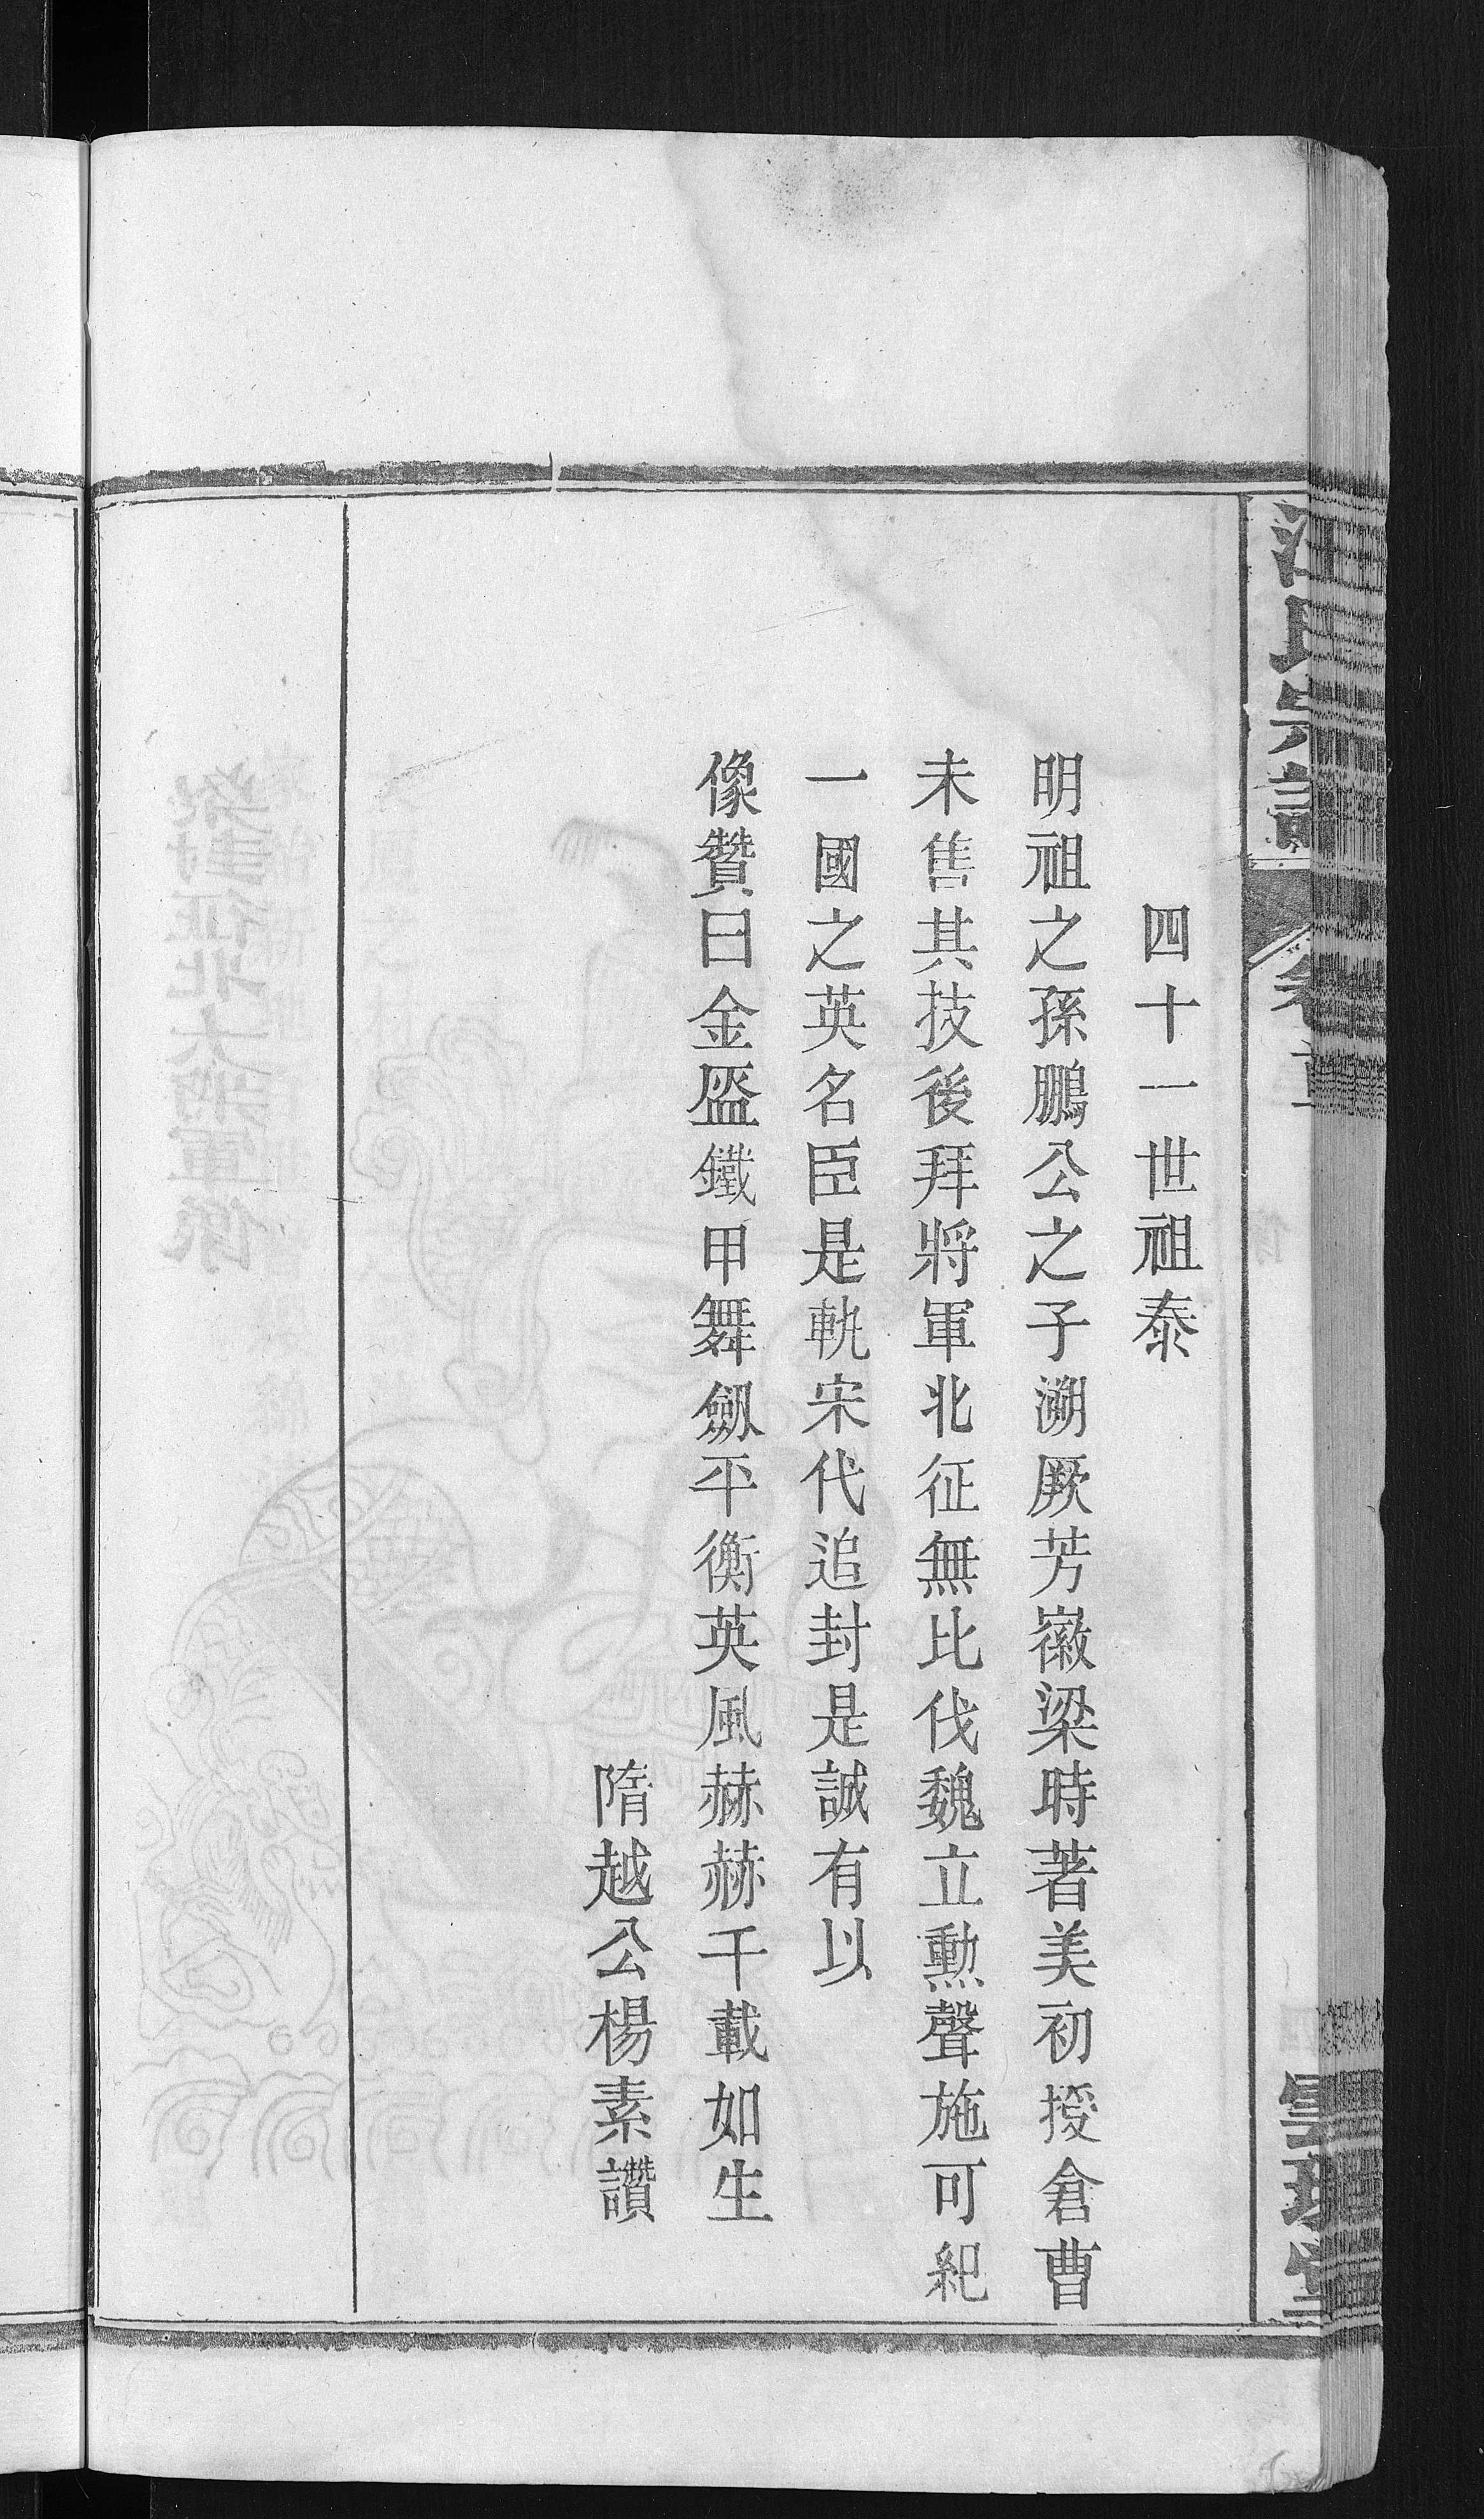 汪氏宗譜
卷首
四十一世祖泰
明祖之孫鵬公之子溯厥芳徽梁時著美初授倉曹
未售其技後拜將軍北征無比伐魏立勲聲施可紀
一國之英名臣是軌宋代追封是誠有以
像贊曰金盔鐵甲舞劔平衡英風赫赫千載如生
隋越公楊素讚